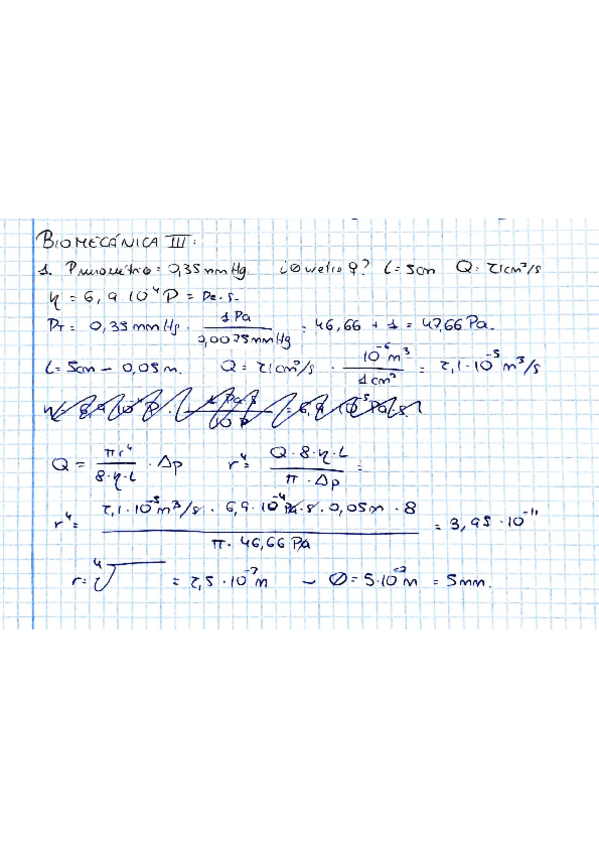 BIOMECÁNICA III:
1. P manométrica = 0,35 mmHg. ¿Ø uretra ♀? L = 5cm Q = 21cm³/s
η = 6,9·10⁻⁴ P = Pa·s.
P_T = 0,35 mmHg · 1 Pa / 0,0075 mmHg = 46,66 + 1 = 47,66 Pa.
L = 5cm – 0,05 m. Q = 21cm³/s · 10⁻⁶ m³ / 1 cm³ = 2,1·10⁻⁵ m³/s
Q = πr⁴ / 8·η·L · Δp r⁴ = Q·8·η·L / π·Δp =
r⁴ = 2,1·10⁻⁵ m³/s · 6,9·10⁻⁴ Pa·s · 0,05m · 8 / π · 46,66 Pa = 3,95·10⁻¹¹
r = ⁴√ = 2,5·10⁻³ m – Ø = 5·10⁻³ m = 5mm.